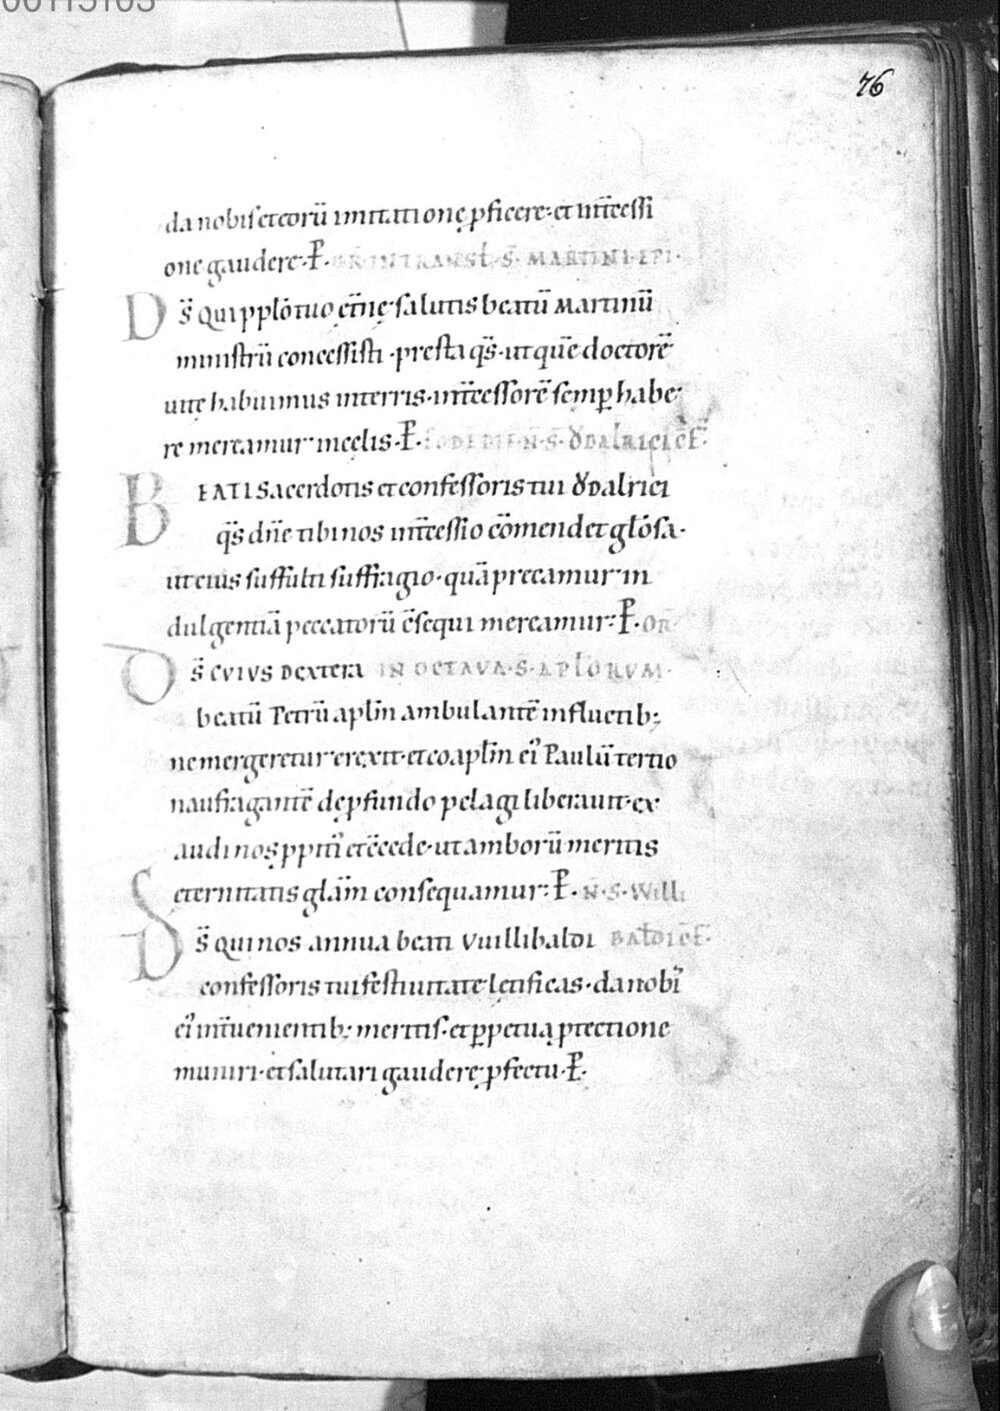 00115103
76
da nobis et eorū imitatione ꝓficere· et int̄cessi
one gaudere· P̄· OR̄ IN TRANSL̄· S̄· MARTINI EPI·
DS̄ qui pplo tuo et̄nę salutis beatū Martinū
ministrū concessisti· presta qs̄· ut quē doctorē
uitę habuimus interris· int̄cessorē semp habe
re mereamur incelis· P̄· N̄· S̄· ȢDALRICI C̄F̄·
BEATI Sacerdotis et confessoris tui Ȣdalrici
qs̄ dn̄e tibi nos int̄cessio cōmendet gl̄osa·
ut eius suffulti suffragio· quā precamur in
dulgentiā peccatorū c̄sequi mereamur· P̄· OR̄
DS̄ CVIVS DEXTERA IN OCTAVA· S̄· APL̄ORVM·
beatū Petrū apl̄m ambulantē influctib;
ne mergeretur erexit· et coapl̄m ei' Paulū tertio
naufragantē de ꝓfundo pelagi liberauit· ex
audi nos ppiti' et c̄cede· ut amborū meritis
eternitatis gl̄am consequamur· P̄· N̄· S· Willi
DS̄ qui nos annua beati Vuillibaldi BALDI C̄F̄·
confessoris tui festiuitate letificas· da nobi'
ei' int̄uenientib; meritis· et ꝑpetua ꝓtectione
muniri· et salutari gaudere ꝓfectu· P̄·